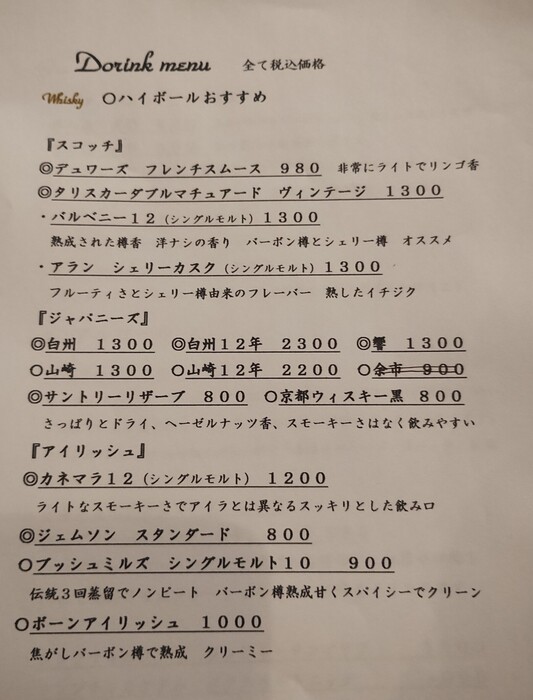 Dorink menu 全て税込価格
Whisky 〇ハイボールおすすめ
『スコッチ』
◎デュワーズ フレンチスムース 980 非常にライトでリンゴ香
◎タリスカーダブルマチュアード ヴィンテージ 1300
・バルベニー12（シングルモルト）1300
熟成された樽香 洋ナシの香り バーボン樽とシェリー樽 オススメ
・アラン シェリーカスク（シングルモルト）1300
フルーティさとシェリー樽由来のフレーバー 熟したイチジク
『ジャパニーズ』
◎白州 1300 ◎白州12年 2300 ◎響 1300
〇山崎 1300 〇山崎12年 2200 〇余市 900
◎サントリーリザーブ 800 〇京都ウィスキー黒 800
さっぱりとドライ、ヘーゼルナッツ香、スモーキーさはなく飲みやすい
『アイリッシュ』
◎カネマラ12（シングルモルト） 1200
ライトなスモーキーさでアイラとは異なるスッキリとした飲み口
◎ジェムソン スタンダード 800
〇ブッシュミルズ シングルモルト10 900
伝統3回蒸留でノンピート バーボン樽熟成甘くスパイシーでクリーン
〇ボーンアイリッシュ 1000
焦がしバーボン樽で熟成 クリーミー